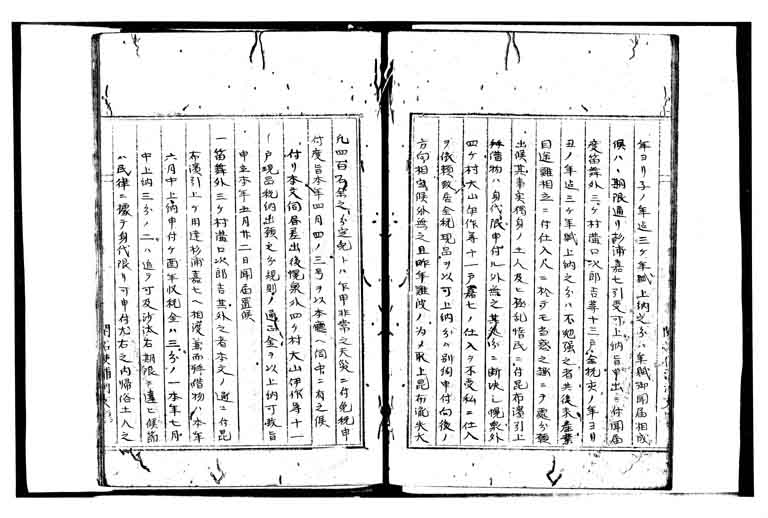 年ヨリ子ノ年迄三ケ年賦上納之分ハ年賦御聞届相成
候ハヽ期限通リ杉浦嘉七引受可上納旨申出ニ付聞届
度笛舞外三ケ村溝口次郎吉等十三戸金税亥ノ年ヨリ
丑ノ年迄三ケ年賦上納之分ハ不勉強之者共後来産業
目途難相立ニ付仕入尺ニ於テモ当惑之趣ニテ處分願
出候其事実独身ノ土人及ヒ極乱惰民ニ付昆布濱引上
拝借物ハ身代限申付ル外無之其處分ニ断決シ幌泉外
四ケ村大山伊作等十一戸嘉七ノ仕入ヲ不受私ニ仕入
ヲ依頼致居全税現品ヲ以可上納分ハ別紙申付向後ノ
方向相当候外無之且昨年難破ノ為メ取上昆布流失大
凡四百石余之分定免トハ乍申非常之天災ニ付免税申
付度旨本年四月四ノ三号ヲ以本廳ヘ伺中ニ有之候
付リ本文伺書差出後幌泉外四ケ村大山伊作等十一
戸現品税納出願之分規則ノ通正金ヲ以上納可致旨
申立本年五月廿二日聞届置候
一笛舞外三ケ村溝口次郎吉其外之者本文ノ通ニ付昆
布濱引上ケ用達杉浦嘉七ヘ相渡蓋而拝借物ハ本年
六月中上納申付ケ酉年收税金ハ三分ノ一本年七月
中上納三分ノ二ハ追テ可及沙汰右期限ヲ違ヒ候節
ハ民律ニ據テ身代限リ可申付尤右之内帰俗土人之